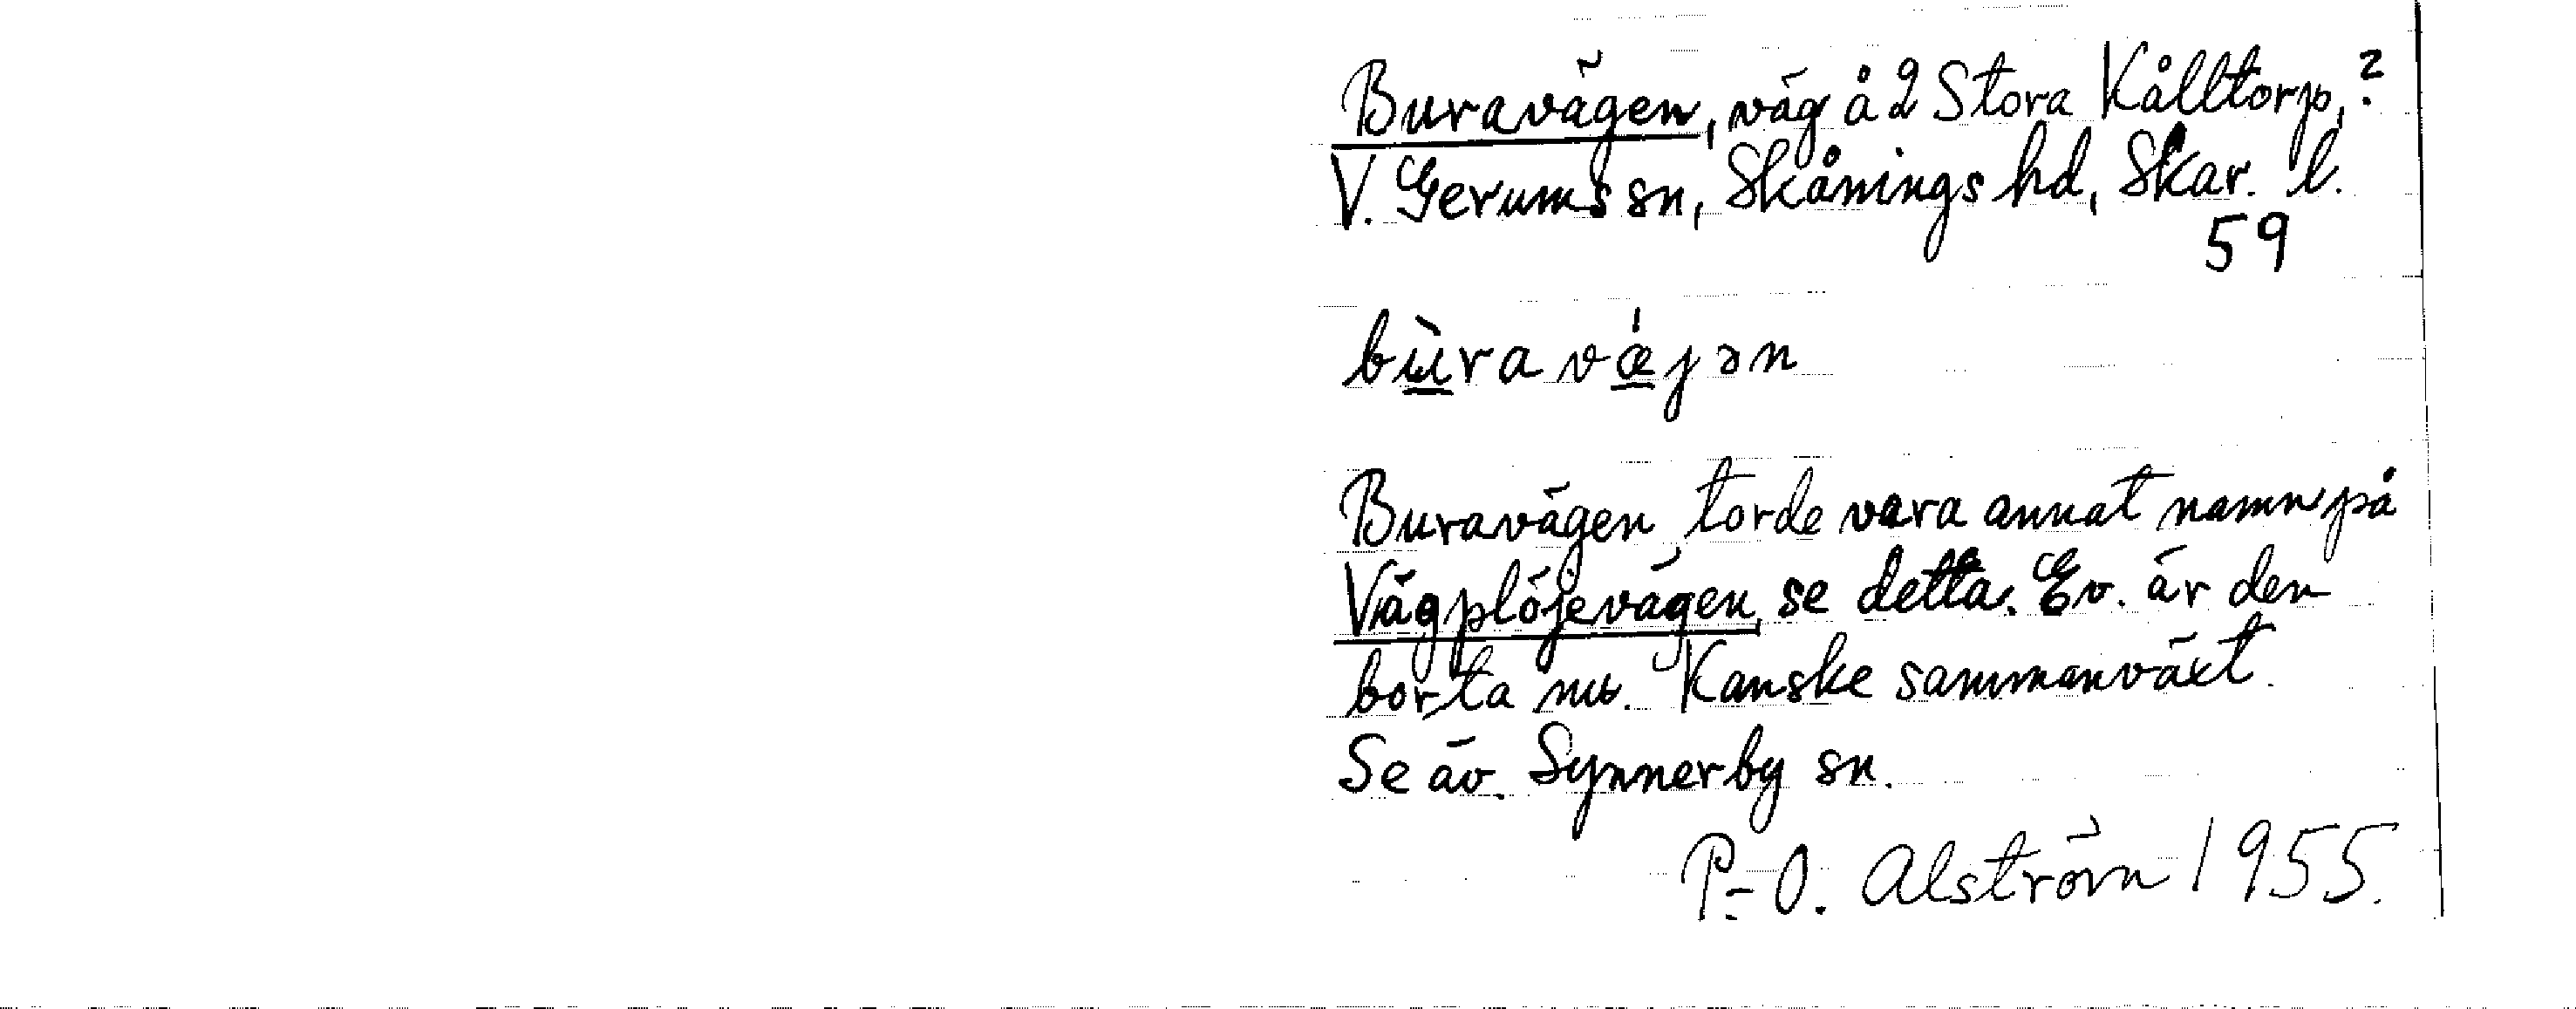 Buravägen, väg å 2 Stora Kålltorp, ?
V. Gerums sn, Skånings hd, Skar. l.
59
bùra vǽjən
Buravägen torde vara annat namn på
Vägplöjevägen, se detta. Ev. är den
borta nu. Kanske sammanväxt.
Se äv. Synnerby sn.
P.-O. Alström 1955.